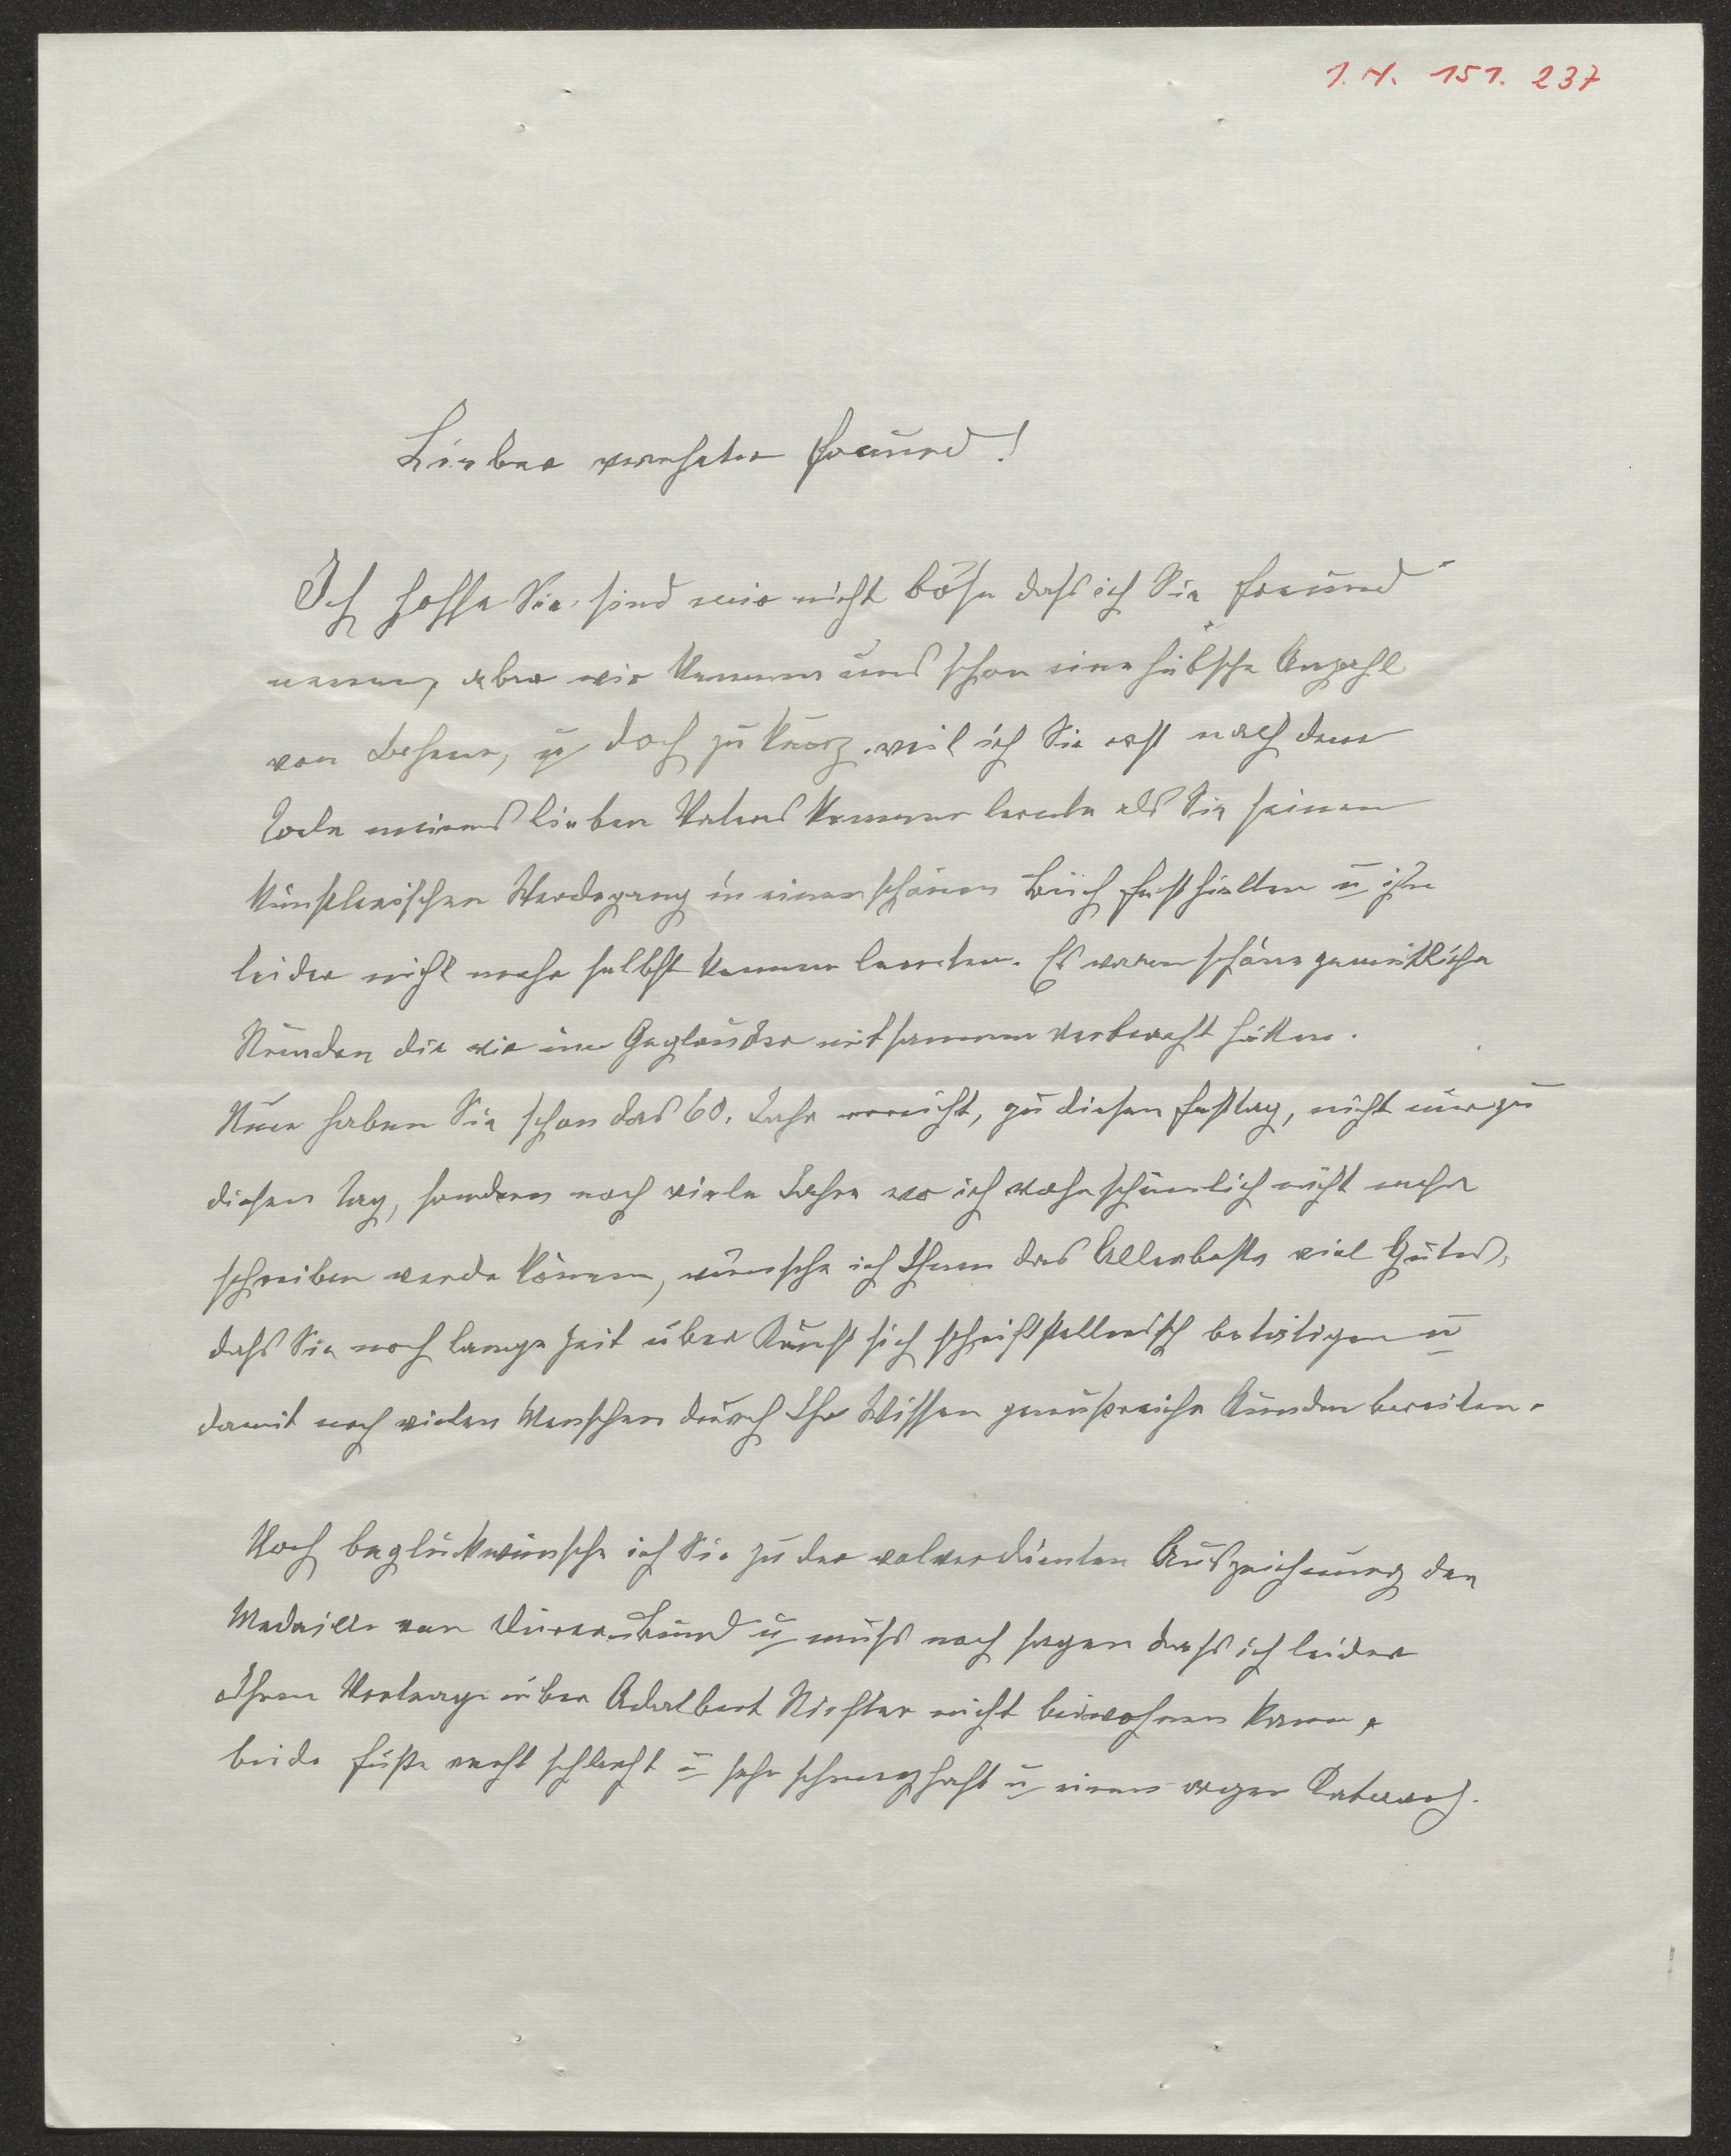 I.N. 151.237
Lieber verehrter Freund!
Ich hoffe Sie sind mir nicht böse dass ich Sie Freund
nenne, aber wir kennen uns schon eine hübsche Anzahl
von Jahren, u doch zu kurz weil ich Sie erst nach dem
Tode meines lieben Vaters kennen lernte als Sie seinen
künstlerischen Werdegang in einen schönen Buch festhielten u ihn
leider nicht mehr selbst kennen lernten. Es waren schöne gemütliche
Stunden die wir im mitsammen verbracht hatten.
Nun haben Sie schon das 60. Jahr erreicht, zu diesen Festtag, nicht nur zu
diesen Tag, sondern noch viele Jahre wo ich wahrscheinlich nicht mehr
schreiben werde können, wünsche ich Ihnen das Allerbeste viel Gutes,
dass Sie noch lange Zeit über Kunst sich schriftstellerisch betätigen u
damit noch vielen Menschen durch Ihr Wissen genußreiche Stunden bereiten.
Noch beglückwünsche ich Sie zu der volverdienten Auszeichnung der
Medaille von Dürer-Bund u muss noch sagen dass ich leider
Ihren Vortrage über Adalbert Stifter nicht beiwohnen kann,
beide Füße recht schlecht u sehr schmerzhaft u einen argen